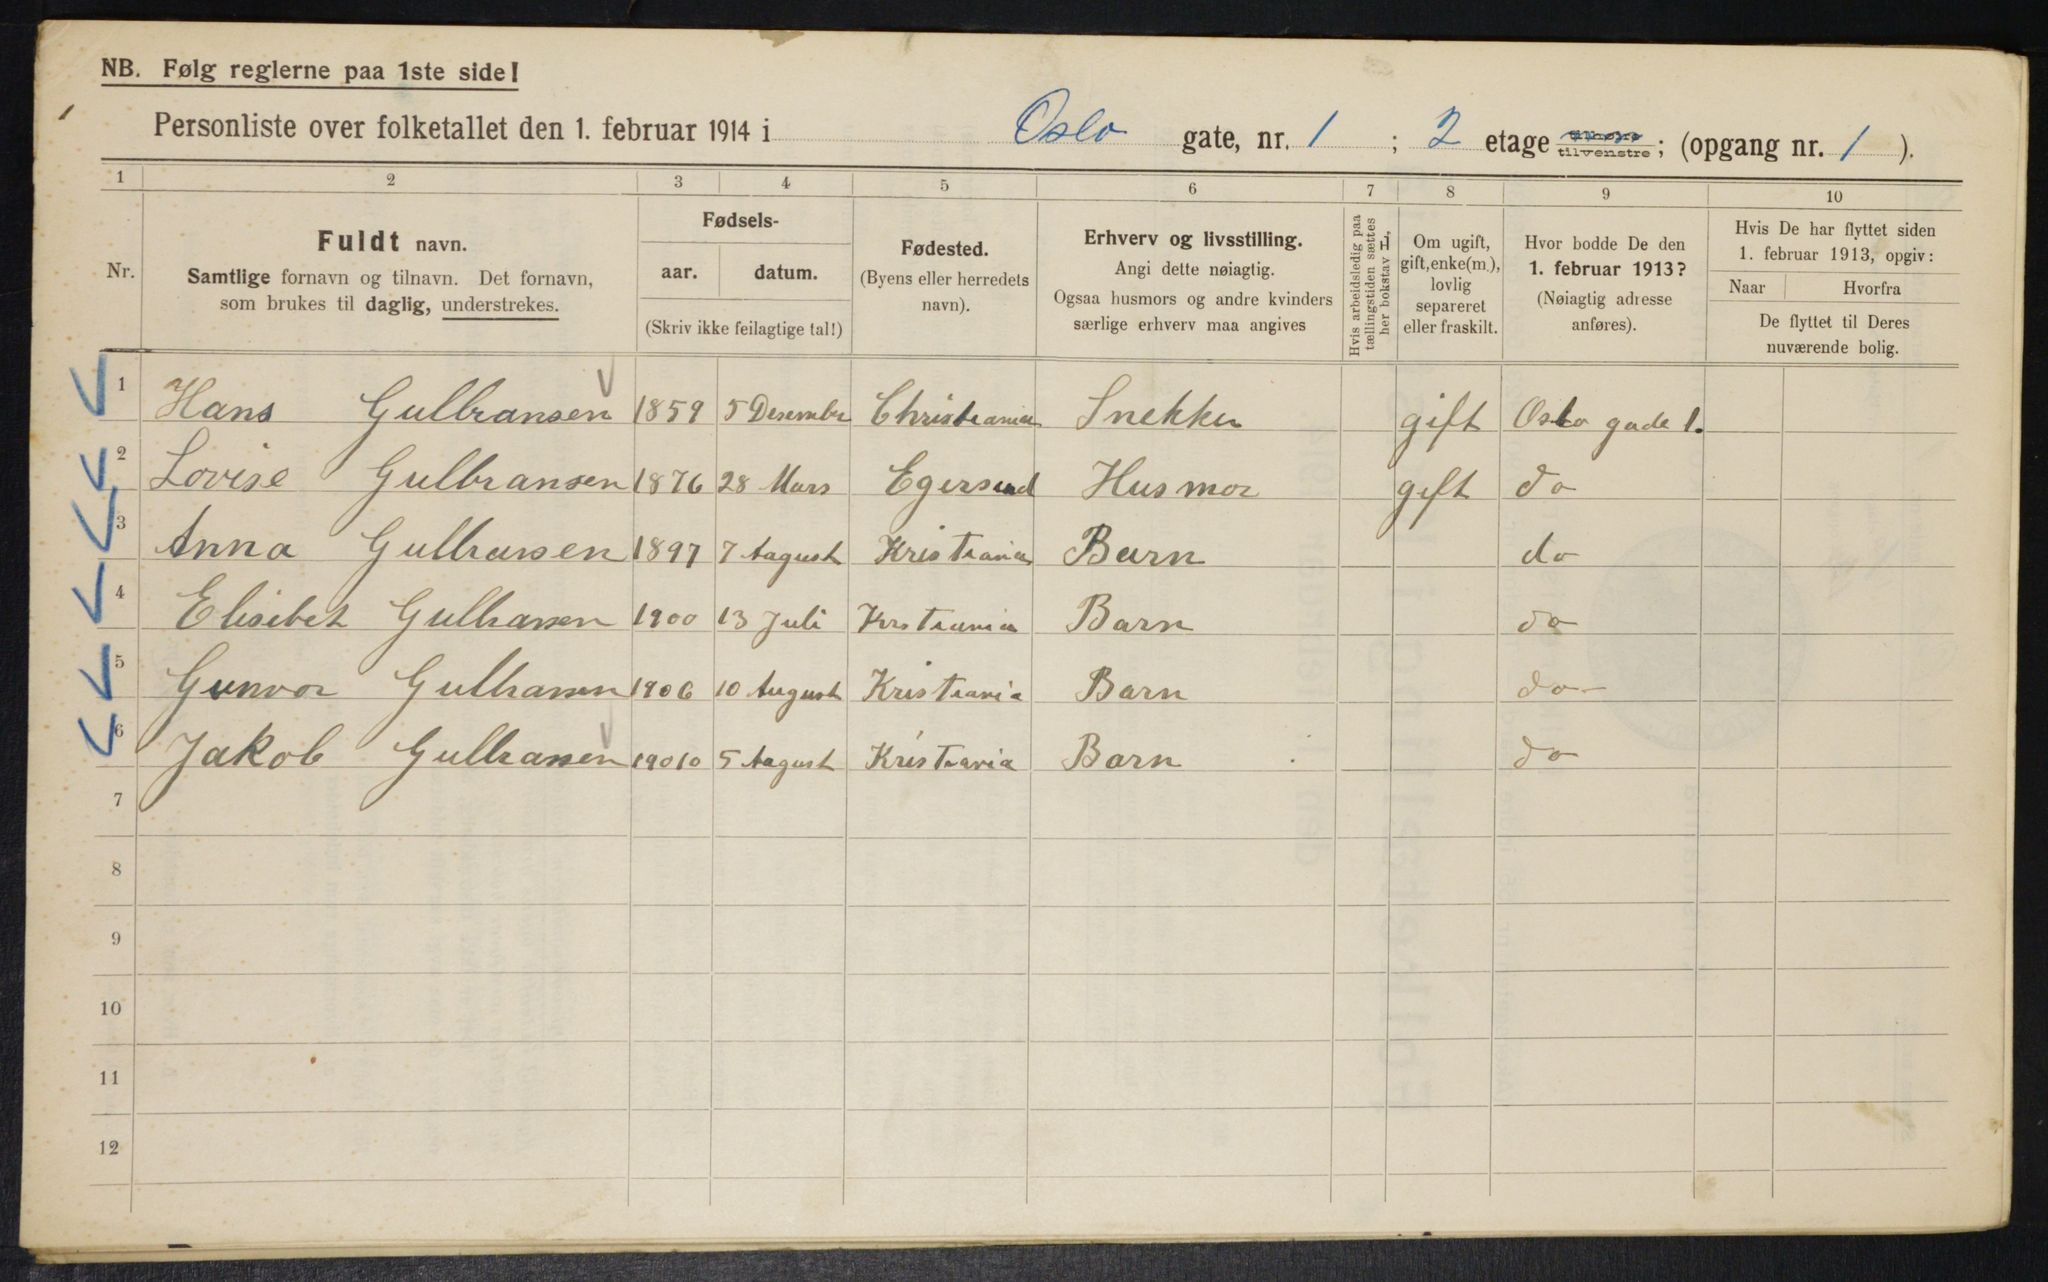 NB. Følg reglerne paa 1ste side!
Personliste over folketallet den 1. februar 1914 i Oslo gate, nr. 1 ; 2 etage tilvenstre; (opgang nr. 1 ).
1 2 3 4 5 6 7 8 9 10
Nr.
Fuldt navn.
Samtlige fornavn og tilnavn. Det fornavn,
som brukes til daglig, understrekes.
Fødsels-
aar. datum.
(Skriv ikke feilagtige tal!)
Fødested.
(Byens eller herredets
navn).
Erhverv og livsstilling.
Angi dette nøiagtig.
Ogsaa husmors og andre kvinders
særlige erhverv maa angives
Hvis arbeidsledig paa
tællingstiden sættes
her bokstav L,
Om ugift,
gift, enke(m.),
lovlig
separeret
eller fraskilt.
Hvor bodde De den
1. februar 1913?
(Nøiagtig adresse
anføres).
Hvis De har flyttet siden
1. februar 1913, opgiv:
Naar Hvorfra
De flyttet til Deres
nuværende bolig.
1 Hans Gulbransen 1859 5 Desembr Christiania Snekker gift Oslo gade 1.
2 Lovise Gulbransen 1876 28 Mars Egersund Husmor gift do
3 Anna Gulbransen 1897 7 August Kristiania Barn do
4 Elisibet Gulbransen 1900 13 Juli Kristiania Barn do
5 Gunvor Gulbransen 1906 10 August Kristiania Barn do
6 Jakob Gulbransen 19010 5 August Kristiania Barn do
7
8
9
10
11
12